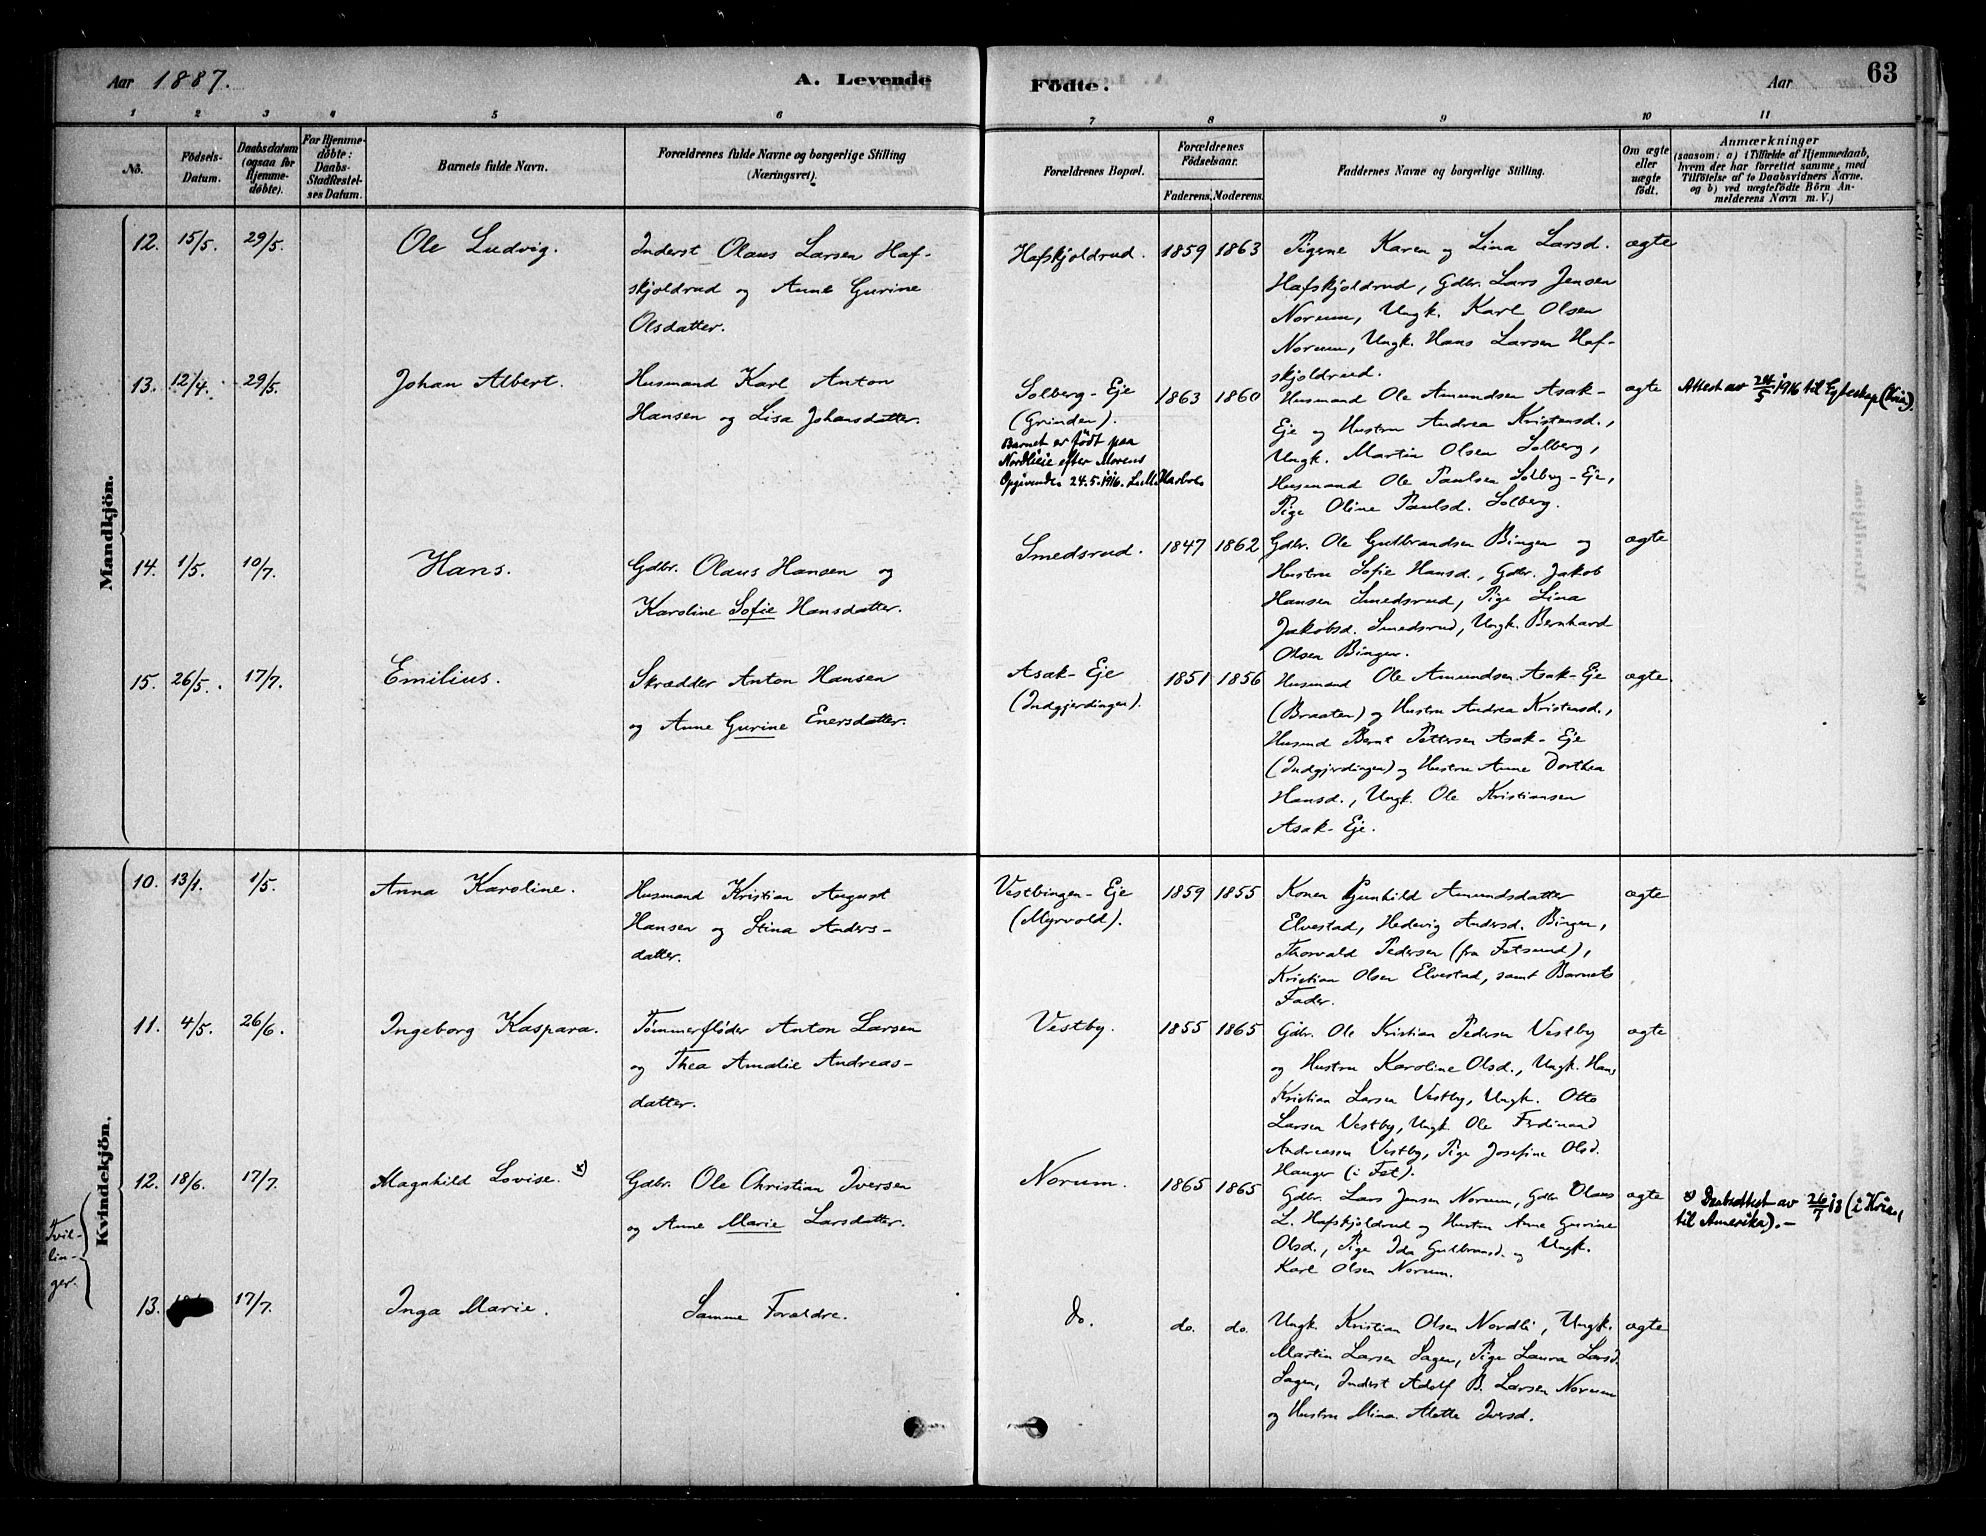 Aar 1887.
A. Levende
Fødte.
Aar
63
1 2 3 4 5 6 7 8 9 10 11
No.
Fødsels-
Datum.
Daabsdatum
(ogsaa for
Hjemme-
døbte).
For Hjemme-
døbte:
Daabs-
Stadfæstel-
ses Datum.
Barnets fulde Navn.
Forældrenes fulde Navne og borgerlige Stilling
(Næringsvei).
Forældrenes Bopæl.
Forældrenes
Fødselsaar.
Faderens. Moderens.
Faddernes Navne og borgerlige Stilling.
Om ægte
eller
uægte
født.
Anmærkninger
(saasom: a) i Tilfælde af Hjemmedaab,
hvem der har forrettet samme, med
Tilføielse af to Daabsvidners Navne.
og b) ved uægtefødte Børn An-
melderens Navn m. V.)
Mandkjön.
12. 15/5. 29/5. Ole Ludvig.
Inderst Olaus Larsen Haf-
skjoldrud og Anne Gurine
Olsdatter.
Hafskjoldrud. 1859 1863
Pigerne Karen og Lina Larsd.
Hafskjoldrud, Gdbr. Lars Jensen
Norum, Ungk. Karl Olsen
Norum, Ungk. Hans Larsen Haf-
skjoldrud.
ægte
13. 12/4. 29/5. Johan Albert.
Husmand Karl Anton
Hansen og Lisa Johansdatter.
Solberg-Eje
(Grinden).
Barnet er født paa
Nordlieie efter Morens
Opgivende 24.5.1916.
1863 1860
Husmand Ole Amundsen Asak-
Eje og Hustru Andrea Kristensd.,
Ungk. Martin Olsen Solberg,
Husmand Ole Paulsen Solberg-Eje,
Pige Oline Paulsd. Solberg.
ægte
Attest av 24/5 1916 til Egteskap
14. 1/5. 10/7. Hans.
Gdbr. Olaus Hansen og
Karoline Sofie Hansdatter.
Smedsrud. 1847 1862
Gdbr. Ole Gulbrandsen Bingen og
Hustru Sofie Hansd., Gdbr. Jakob
Hansen Smedsrud, Pige Lina
Jakobsd. Smedsrud, Ungk. Bernhard
Olsen Bingen.
ægte
15. 26/5. 17/7. Emilius.
Skrædder Anton Hansen
og Anne Gurine Enersdatter.
Asak-Eje
(Indgjerdingen).
1851 1856
Husmand Ole Amundsen Asak-Eje
(Braaten) og Hustru Andrea Kristensd.,
Husmd Bernt Pettersen Asak-Eje
(Indgjerdingen) og Hustru Anne Dorthea
Hansd., Ungk. Ole Kristiansen
Asak-Eje.
ægte
Kvindekjön.
10. 13/1. 1/5. Anna Karoline.
Husmand Kristian August
Hansen og Stina Anders-
datter.
Vestbingen-Eje
(Myrvold).
1859 1855
Konen Gunhild Amundsdatter
Elvestad, Hedevig Andersd. Bingen,
Thorvald Pedersen (fra Fetsund),
Kristian Olsen Elvestad, samt Barnets
Fader.
ægte
11. 4/5. 26/6. Ingeborg Kaspara.
Tømmerfløder Anton Larsen
og Thea Amalie Andreas-
datter.
Vestby. 1855 1865
Gdbr. Ole Kristian Pedersen Vestby
og Hustru Karoline Olsd., Ungk. Hans
Kristian Larsen Vestby, Ungk. Otto
Larsen Vestby, Ungk. Ole Ferdinand
Andreassen Vestby, Pige Josefine Olsd.
Hauger (i Fet).
ægte
Tvil-
lin-
ger.
12. 18/6. 17/7. Magnhild Lovise. x)
Gdbr. Ole Christian Iversen
og Anne Marie Larsdatter.
Norum. 1865 1865
Gdbr. Lars Jensen Norum, Gdbr Olaus
L. Hafskjoldrud og Hustru Anne Gurine
Olsd., Pige Ida Gulbransd. og Ungk.
Karl Olsen Norum.
ægte
x) Daabsattest av 26/7 13
til Amerika). -
13. 17/7. Inga Marie.
Samme Forældre.
Do. do. do.
Ungk. Kristian Olsen Nordli, Ungk.
Martin Larsen Sagen, Pige Laura Larsd.
Sagen, Inderst Adolf B. Larsen Norum
og Hustru Mina Alette Iversd.
ægte